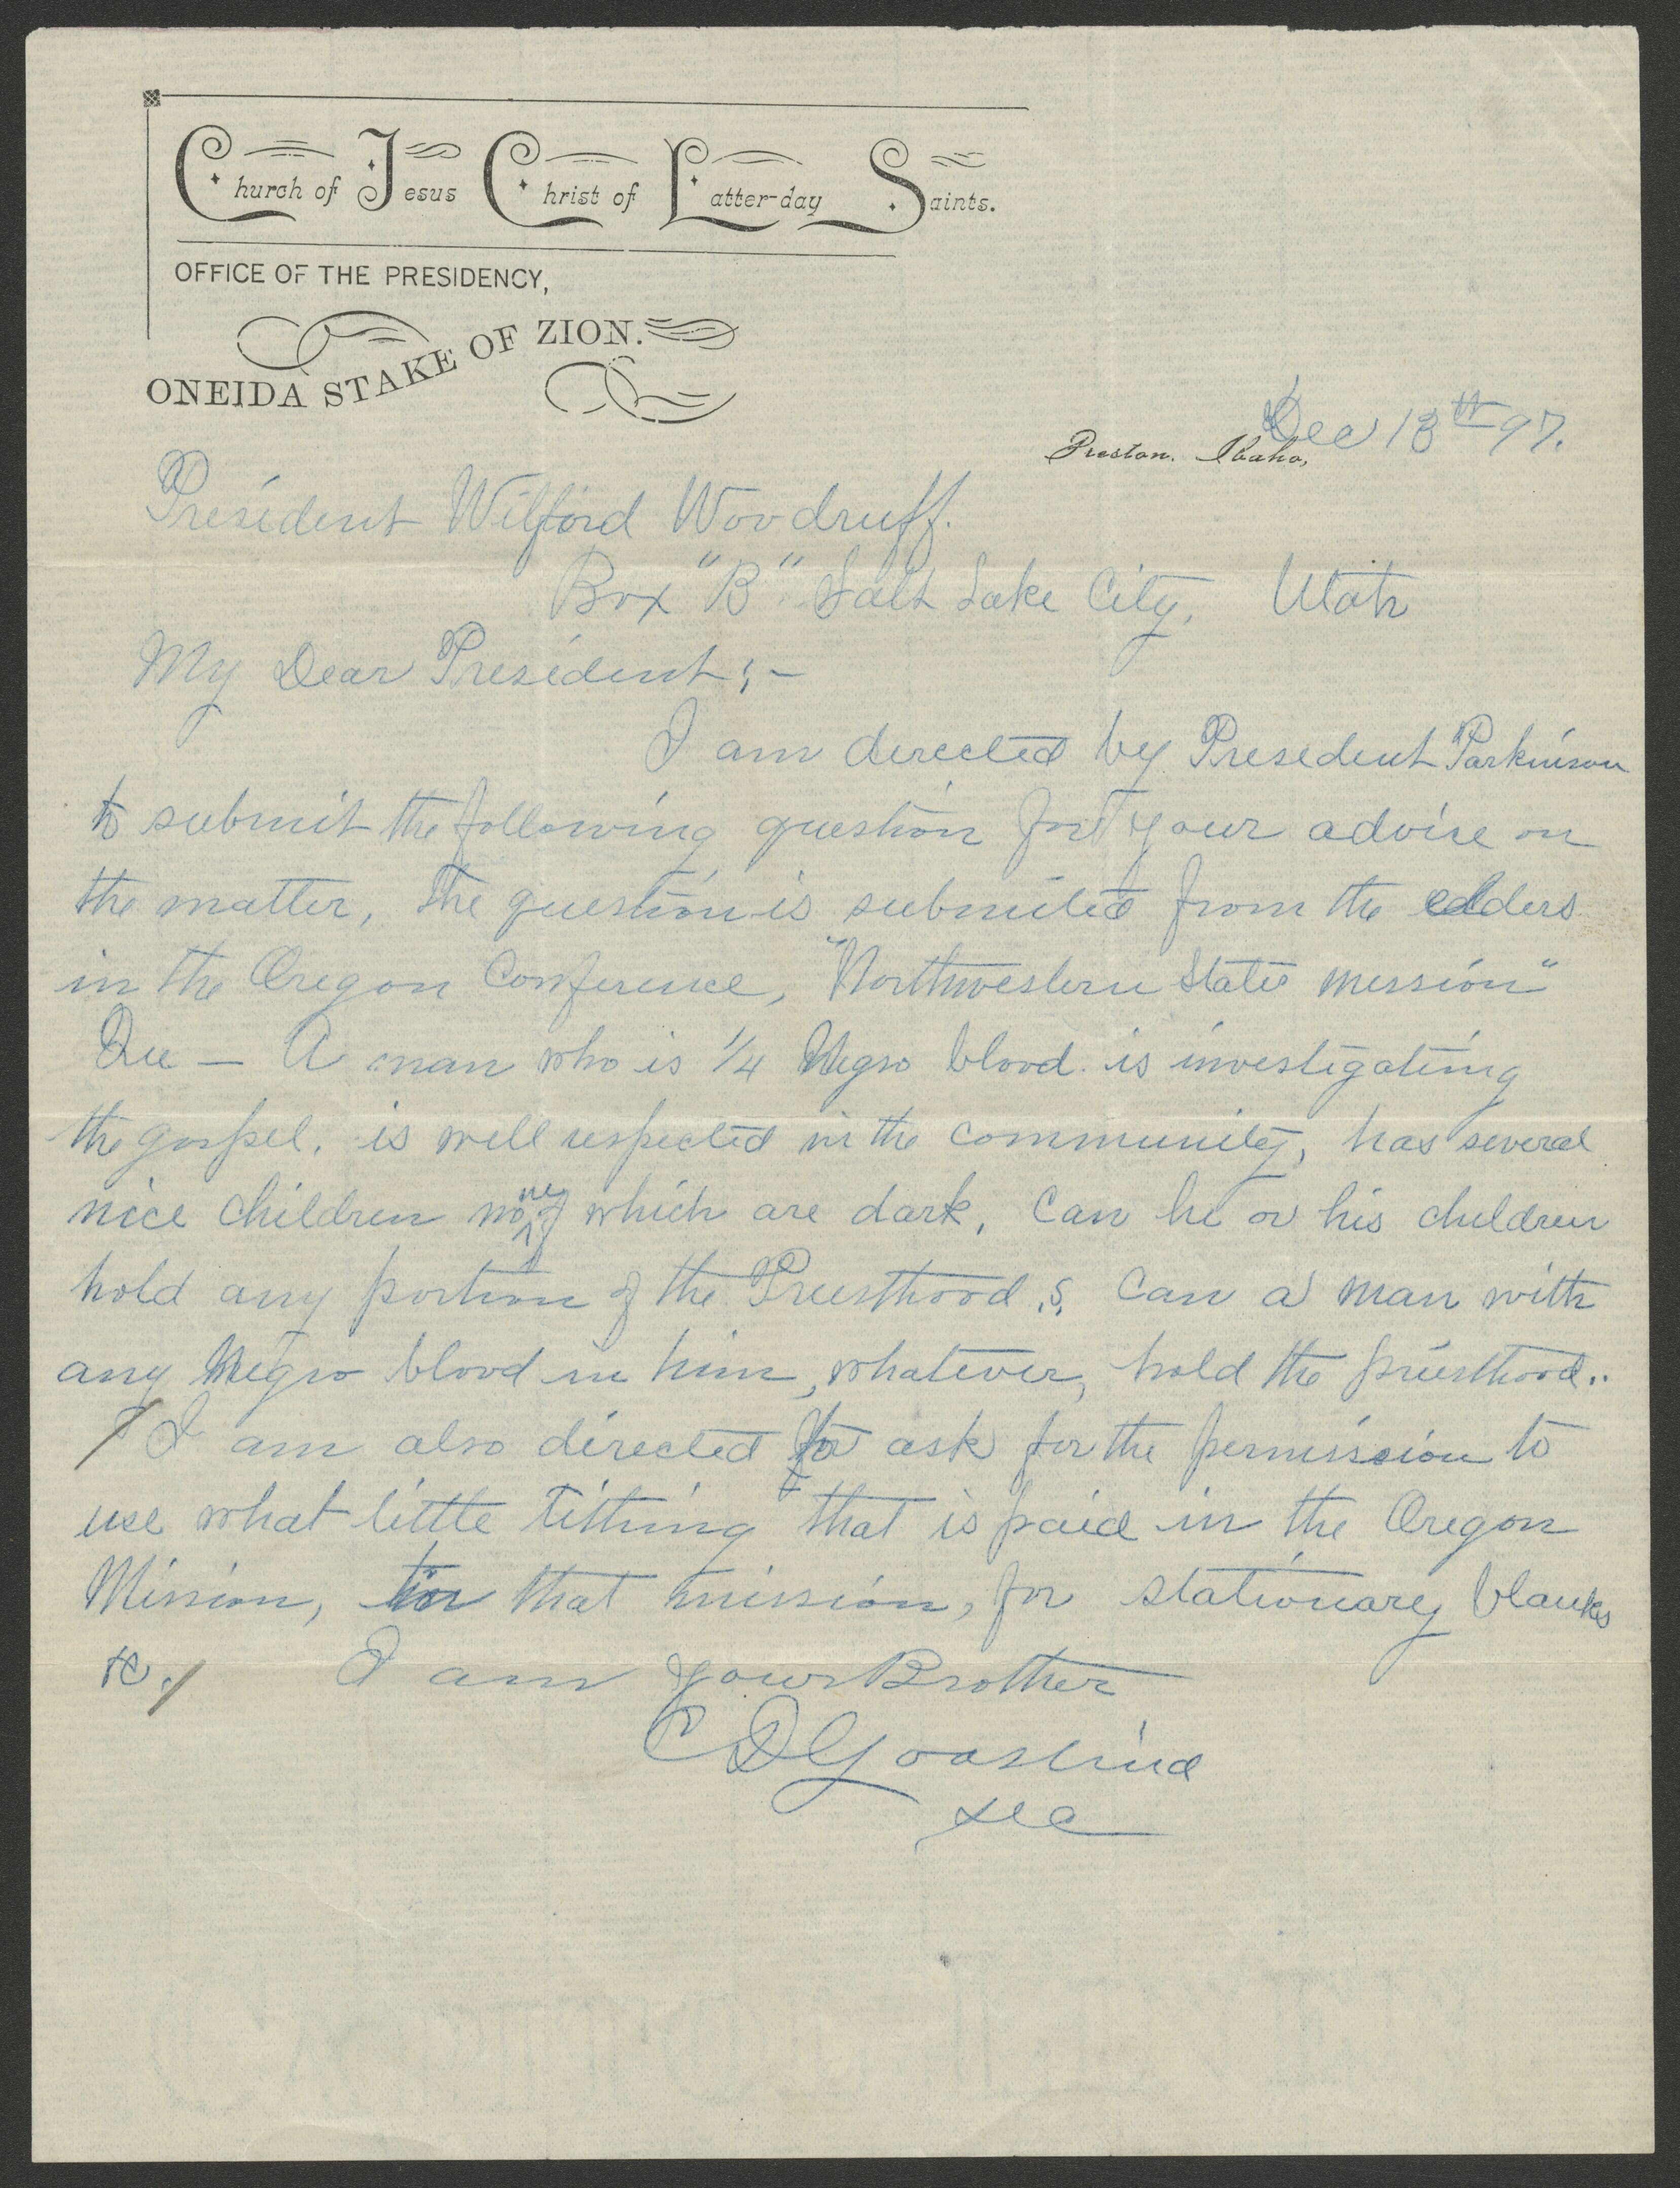 Church of Jesus Christ of Latter-day Saints.
OFFICE OF THE PRESIDENCY,
ONEIDA STAKE OF ZION.
Preston, Idaho, Dec 13th 97.
President Wilford Woodruff.
Box "B" Salt Lake City, Utah
My Dear President;-
I am directed by President Parkinson
to submit the following question for your advise on
the matter, The question is submited from the elders
in the Oregon Conference, "Northwestern States Mission"
Que — A man who is 1/4 Negro blood is investigating
the gospel. is well respected in the community, has several
nice children none of which are dark. Can he or his children
hold any portion of the Priesthood. Can a man with
any Negro blood in him, whatever, hold the priesthood..
I am also directed to ask for the permission to
use what little tithing that is paid in the Oregon
Mission, in that mission, for stationary blanks
&c. I am your Brother
C D Goaslind
sec